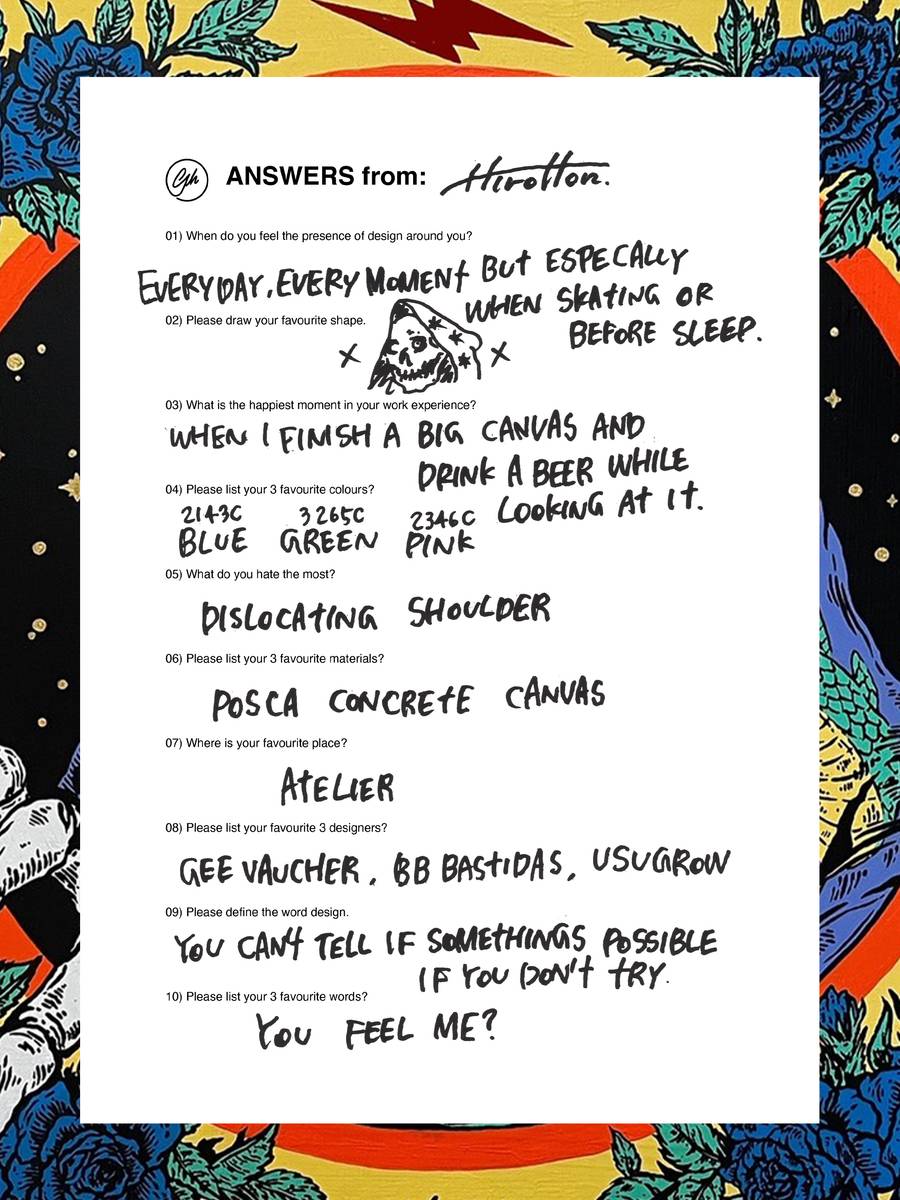 Gh ANSWERS from: Hirotton.
01) When do you feel the presence of design around you?
EVERYDAY, EVERY MOMENT BUT ESPECALLY
WHEN SKATING OR
BEFORE SLEEP.
02) Please draw your favourite shape.
03) What is the happiest moment in your work experience?
WHEN I FINISH A BIG CANVAS AND
DRINK A BEER WHILE
LOOKING AT IT.
04) Please list your 3 favourite colours?
2143C 3265C 2346C
BLUE GREEN PINK
05) What do you hate the most?
DISLOCATING SHOULDER
06) Please list your 3 favourite materials?
POSCA CONCRETE CANVAS
07) Where is your favourite place?
ATELIER
08) Please list your favourite 3 designers?
GEE VAUCHER, BB BASTIDAS, USUGROW
09) Please define the word design.
YOU CAN'T TELL IF SOMETHINGS POSSIBLE
IF YOU DON'T TRY.
10) Please list your 3 favourite words?
YOU FEEL ME?